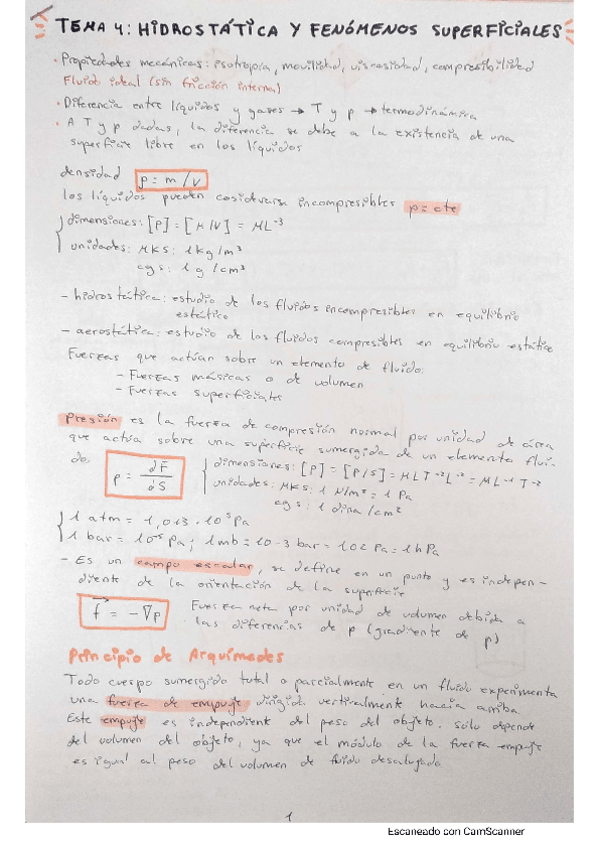 TEMA 4: HIDROSTÁTICA Y FENÓMENOS SUPERFICIALES
· Propiedades mecánicas: isotropía, movilidad, viscosidad, compresibilidad
Fluido ideal (sin fricción interna)
· Diferencia entre líquidos y gases → T y p → termodinámica
· A T y p dadas, la diferencia se debe a la existencia de una
superficie libre en los líquidos
densidad ρ = m/V
los líquidos pueden cosiderarse incompresibles ρ = cte
dimensiones: [ρ] = [M/V] = ML⁻³
unidades: MKS: 1 kg/m³
cgs: 1 g/cm³
- hidrostática: estudio de los fluidos incompresibles en equilibrio
estático
- aerostática: estudio de los fluidos compresibles en equilibrio estático
Fuerzas que actúan sobre un elemento de fluido:
- Fuerzas másicas o de volumen
- Fuerzas superficiales
Presión es la fuerza de compresión normal por unidad de área
que actúa sobre una superficie sumergida de un elemento flui-
do. p = dF/dS
dimensiones: [p] = [F/S] = MLT⁻²L⁻² = ML⁻¹T⁻²
unidades: MKS: 1 N/m² = 1 Pa
cgs: 1 dina/cm²
1 atm = 1,013·10⁵ Pa
1 bar = 10⁵ Pa; 1mb = 10-3 bar = 102 Pa = 1hPa
- Es un campo escalar, se define en un punto y es indepen-
diente de la orientación de la superficie
f = -∇p Fuerza neta por unidad de volumen debida a
las diferencias de p (gradiente de p)
Principio de Arquímedes
Todo cuerpo sumergido total o parcialmente en un fluido experimenta
una fuerza de empuje dirigida verticalmente hacia arriba
Este empuje es independiente del peso del objeto. sólo depende
del volumen del objeto, ya que el módulo de la fuerza empuje
es igual al peso del volumen de fluido desalojado
1
Escaneado con CamScanner